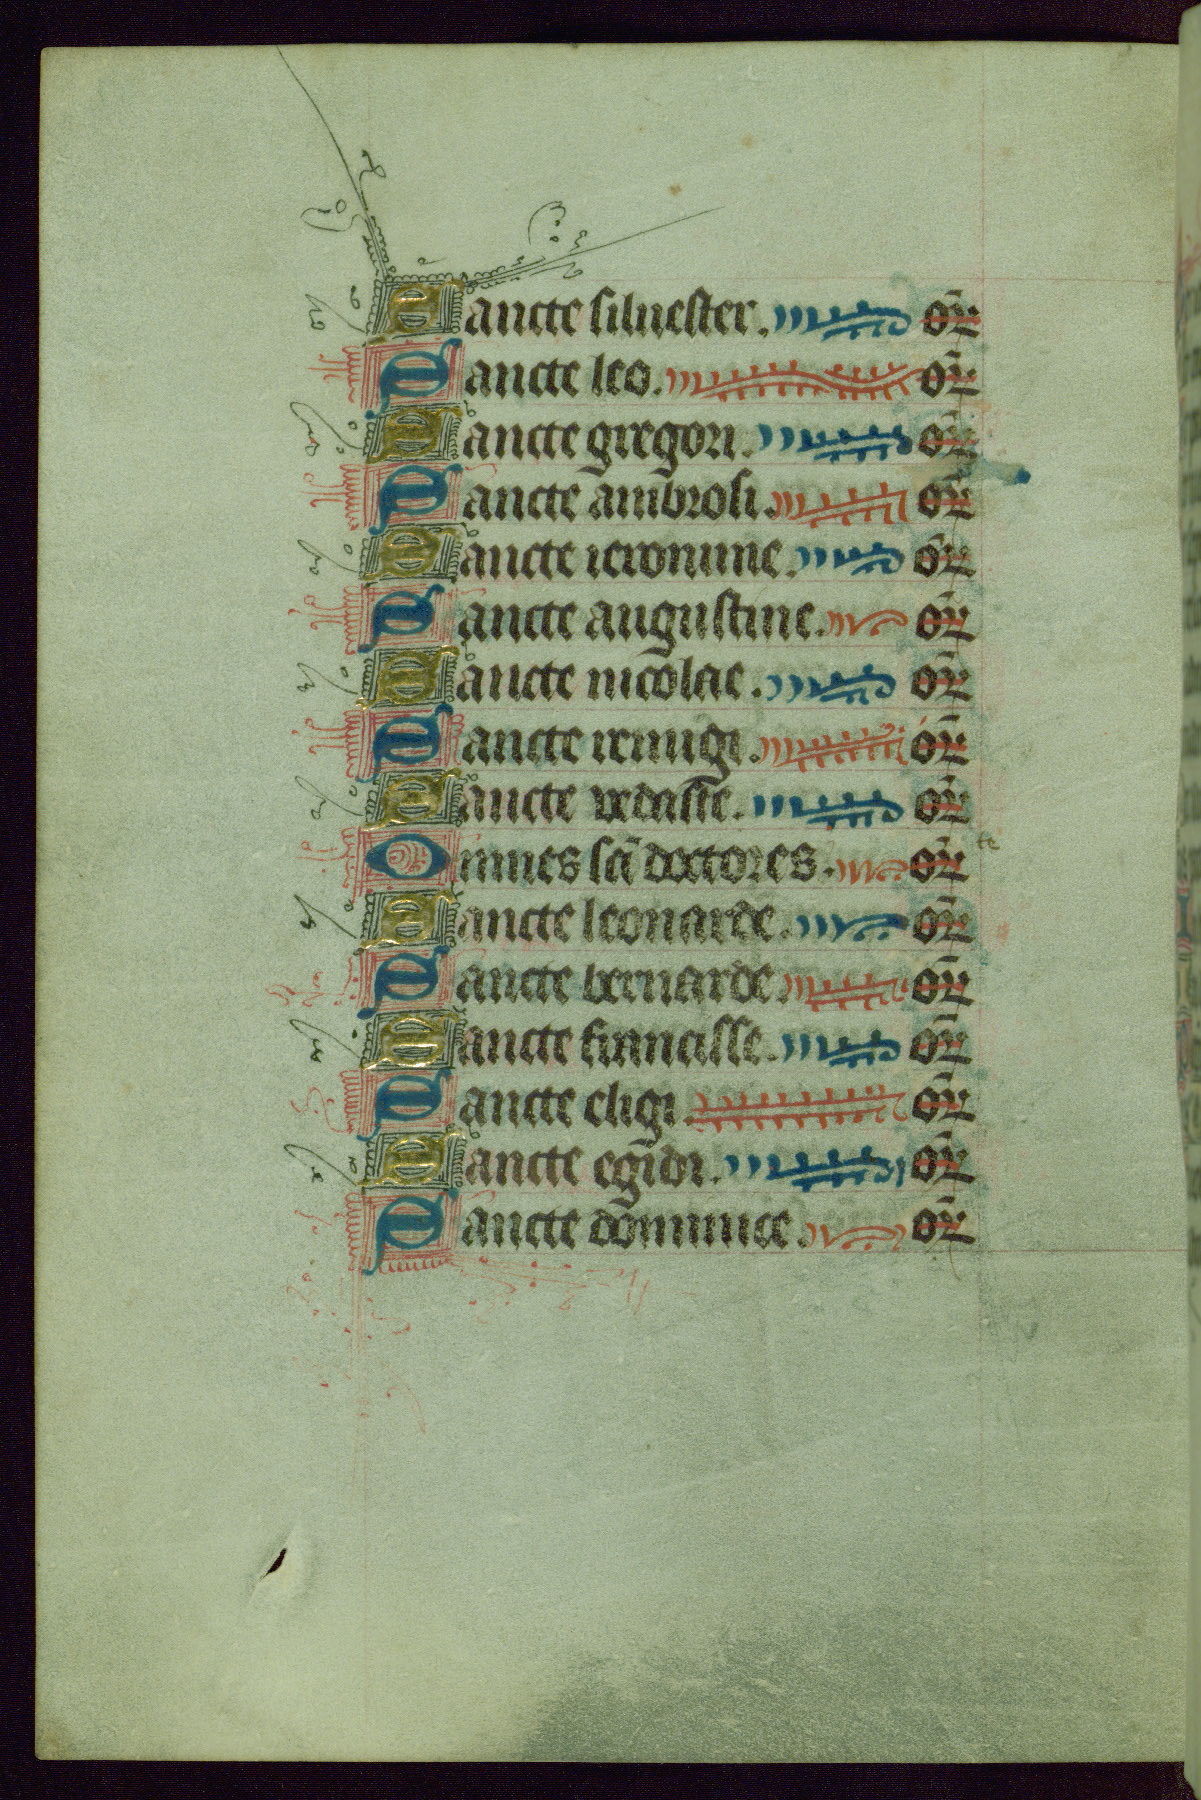 Sancte siluester. or
Sancte leo. or
Sancte gregori. or
Sancte ambrosi. or
Sancte ieronime. or
Sancte augustine. or
Sancte nicolae. or
Sancte remigi. or
Sancte vedaste. or
Omnes sc̄i doctores. or
te
Sancte leonarde. or
Sancte bernarde. or
Sancte francisse. or
Sancte eligi. or
Sancte egidi. or
Sancte dominice. or